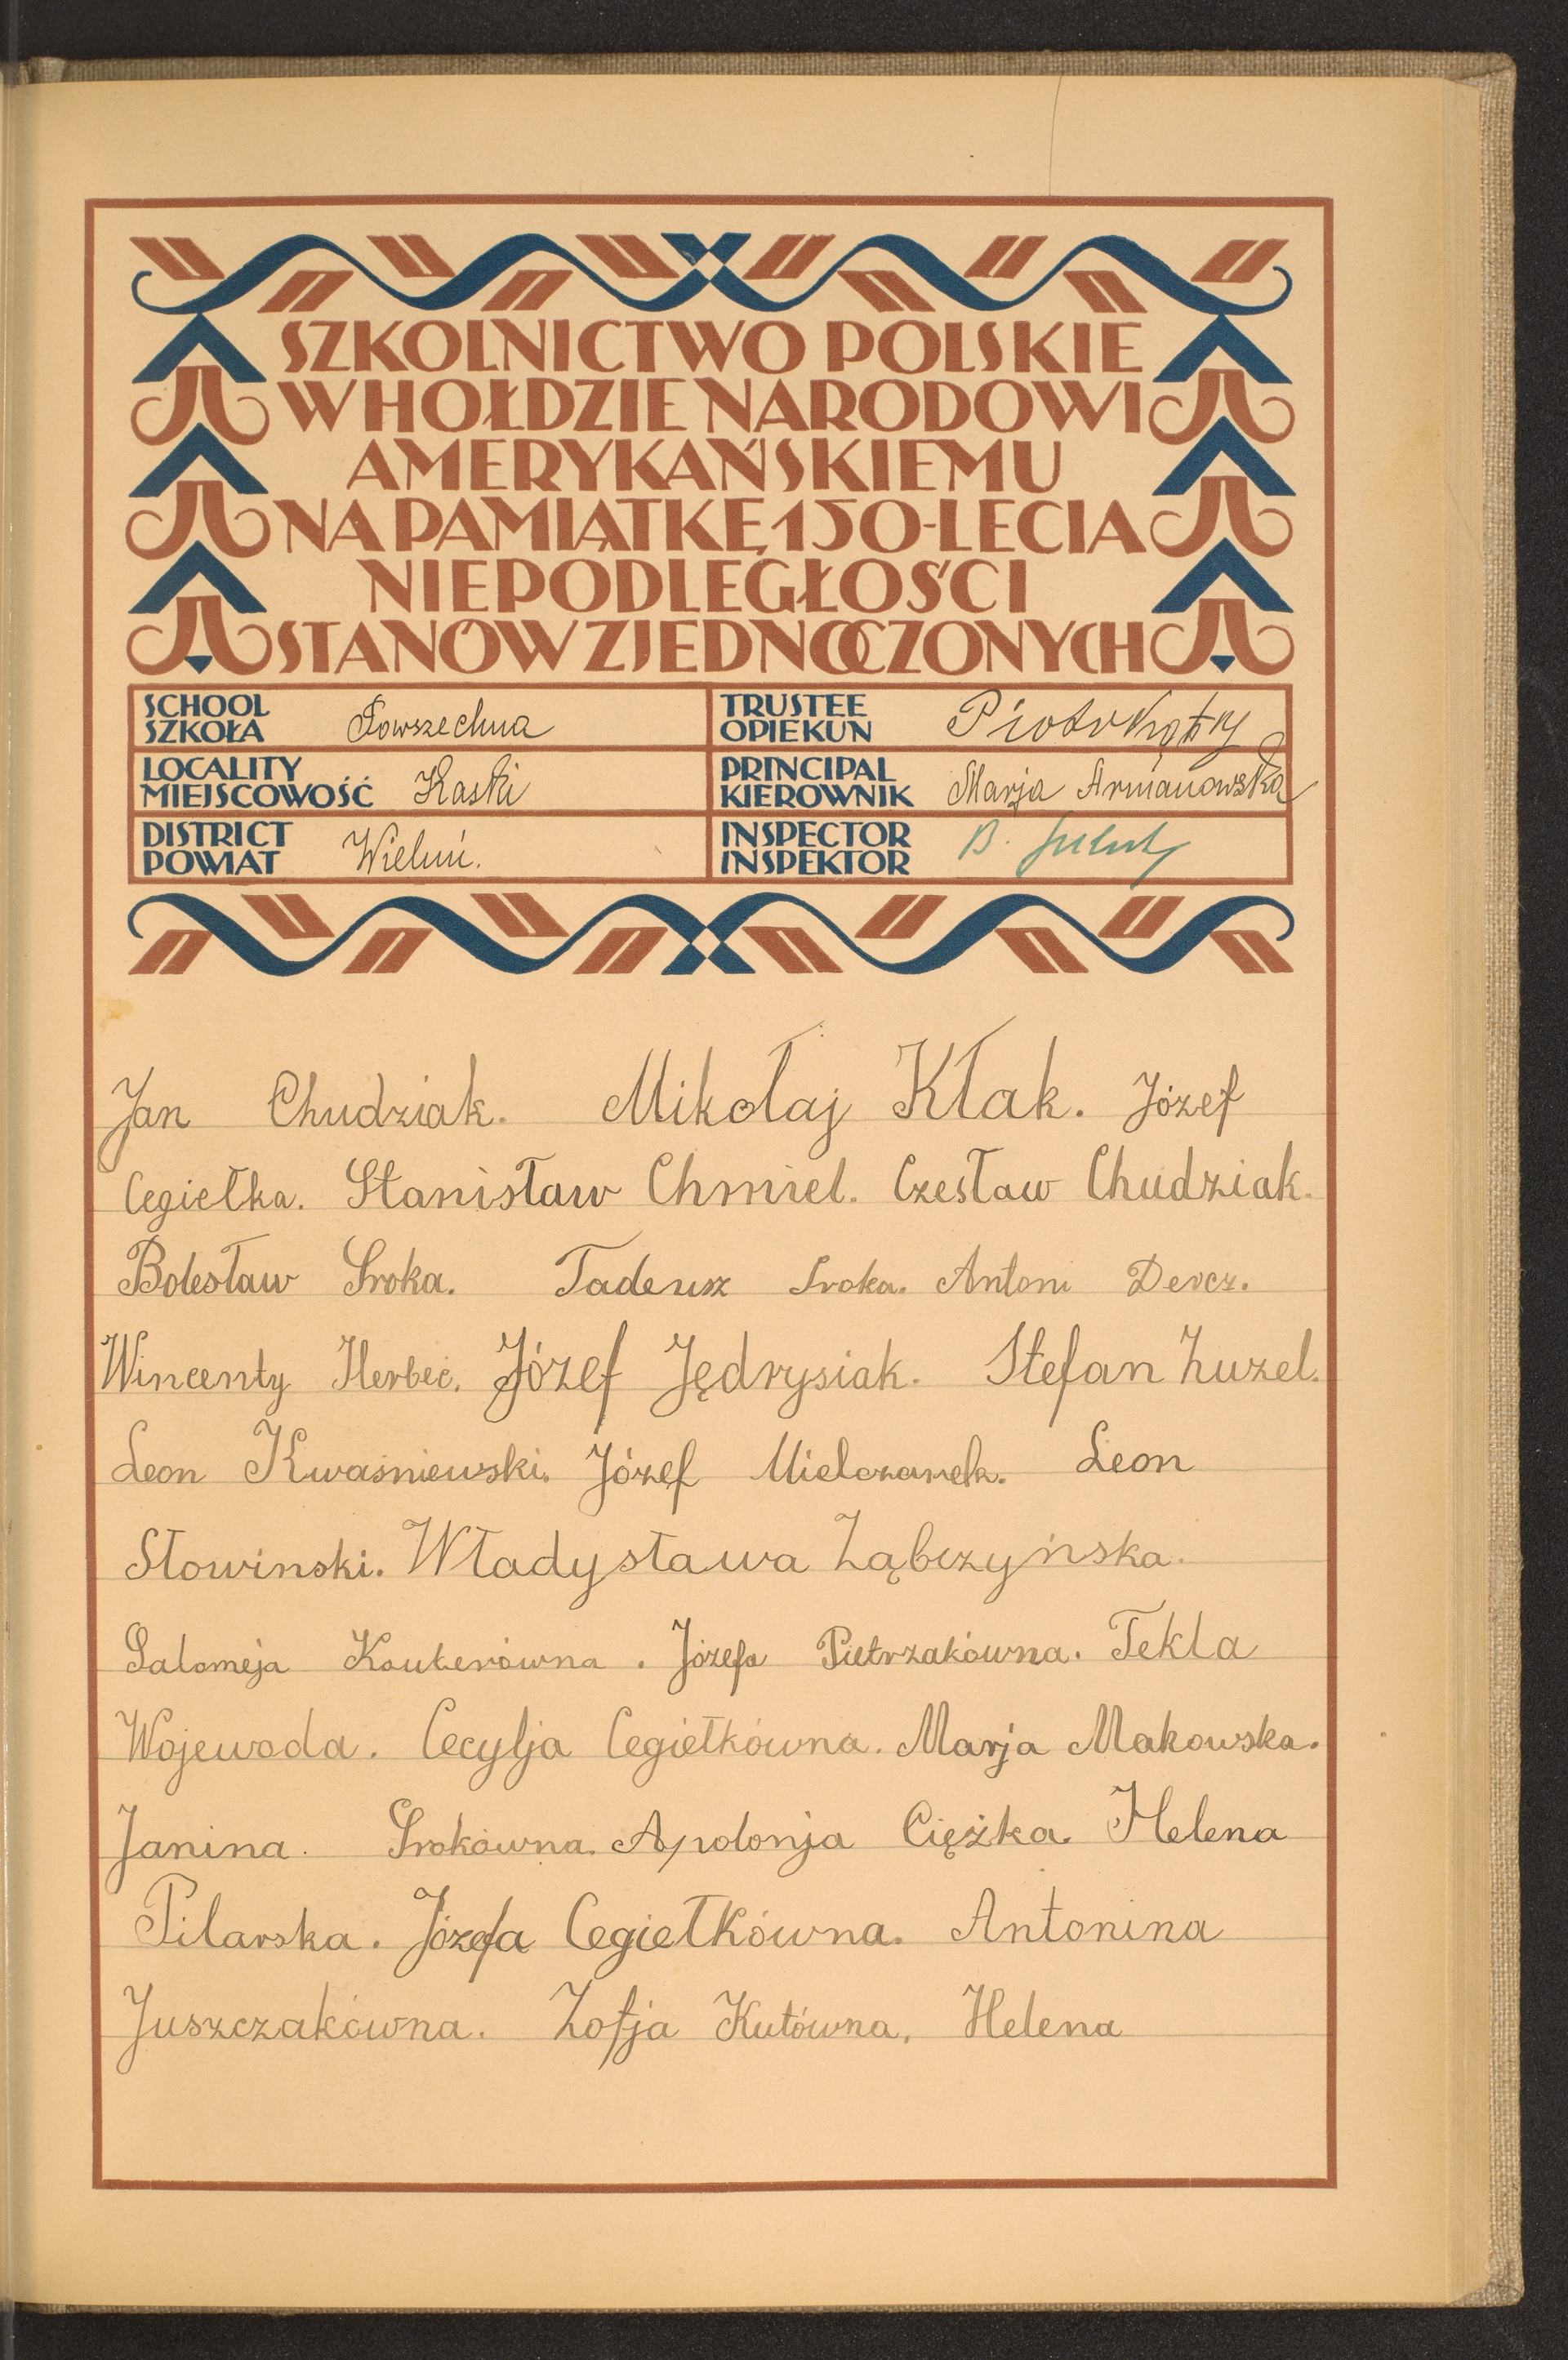 SZKOLNICTWO POLSKIE
W HOŁDZIE NARODOWI
AMERYKAŃSKIEMU
NA PAMIĄTKĘ 150-LECIA
NIEPODLEGŁOŚCI
STANÓW ZJEDNOCZONYCH
SCHOOL
SZKOŁA Powszechna
TRUSTEE
OPIEKUN Piotr
LOCALITY
MIEJSCOWOŚĆ Kaski
PRINCIPAL
KIEROWNIK Marja Armanowska
DISTRICT
POWIAT Wieluń.
INSPECTOR
INSPEKTOR B.
Jan Chudziak. Mikołaj Kłak. Józef
Cegiełka. Stanisław Chmiel. Czesław Chudziak.
Bolesław Sroka. Tadeusz Sroka. Antoni Dercz.
Wincenty Herbeć. Józef Jędrysiak. Stefan Zuzel.
Leon Kwaśniewski. Józef Mielczarek. Leon
Słowinski. Władysława Ząbczyńska.
Salomeja Kouterówna. Józefa Pietrzakówna. Tekla
Wojewoda. Cecylja Cegiełkówna. Marja Makowska.
Janina. Srokówna. Apolonja Ciężka. Helena
Pilarska. Józefa Cegiełkówna. Antonina
Juszczakówna. Zofja Kutówna. Helena